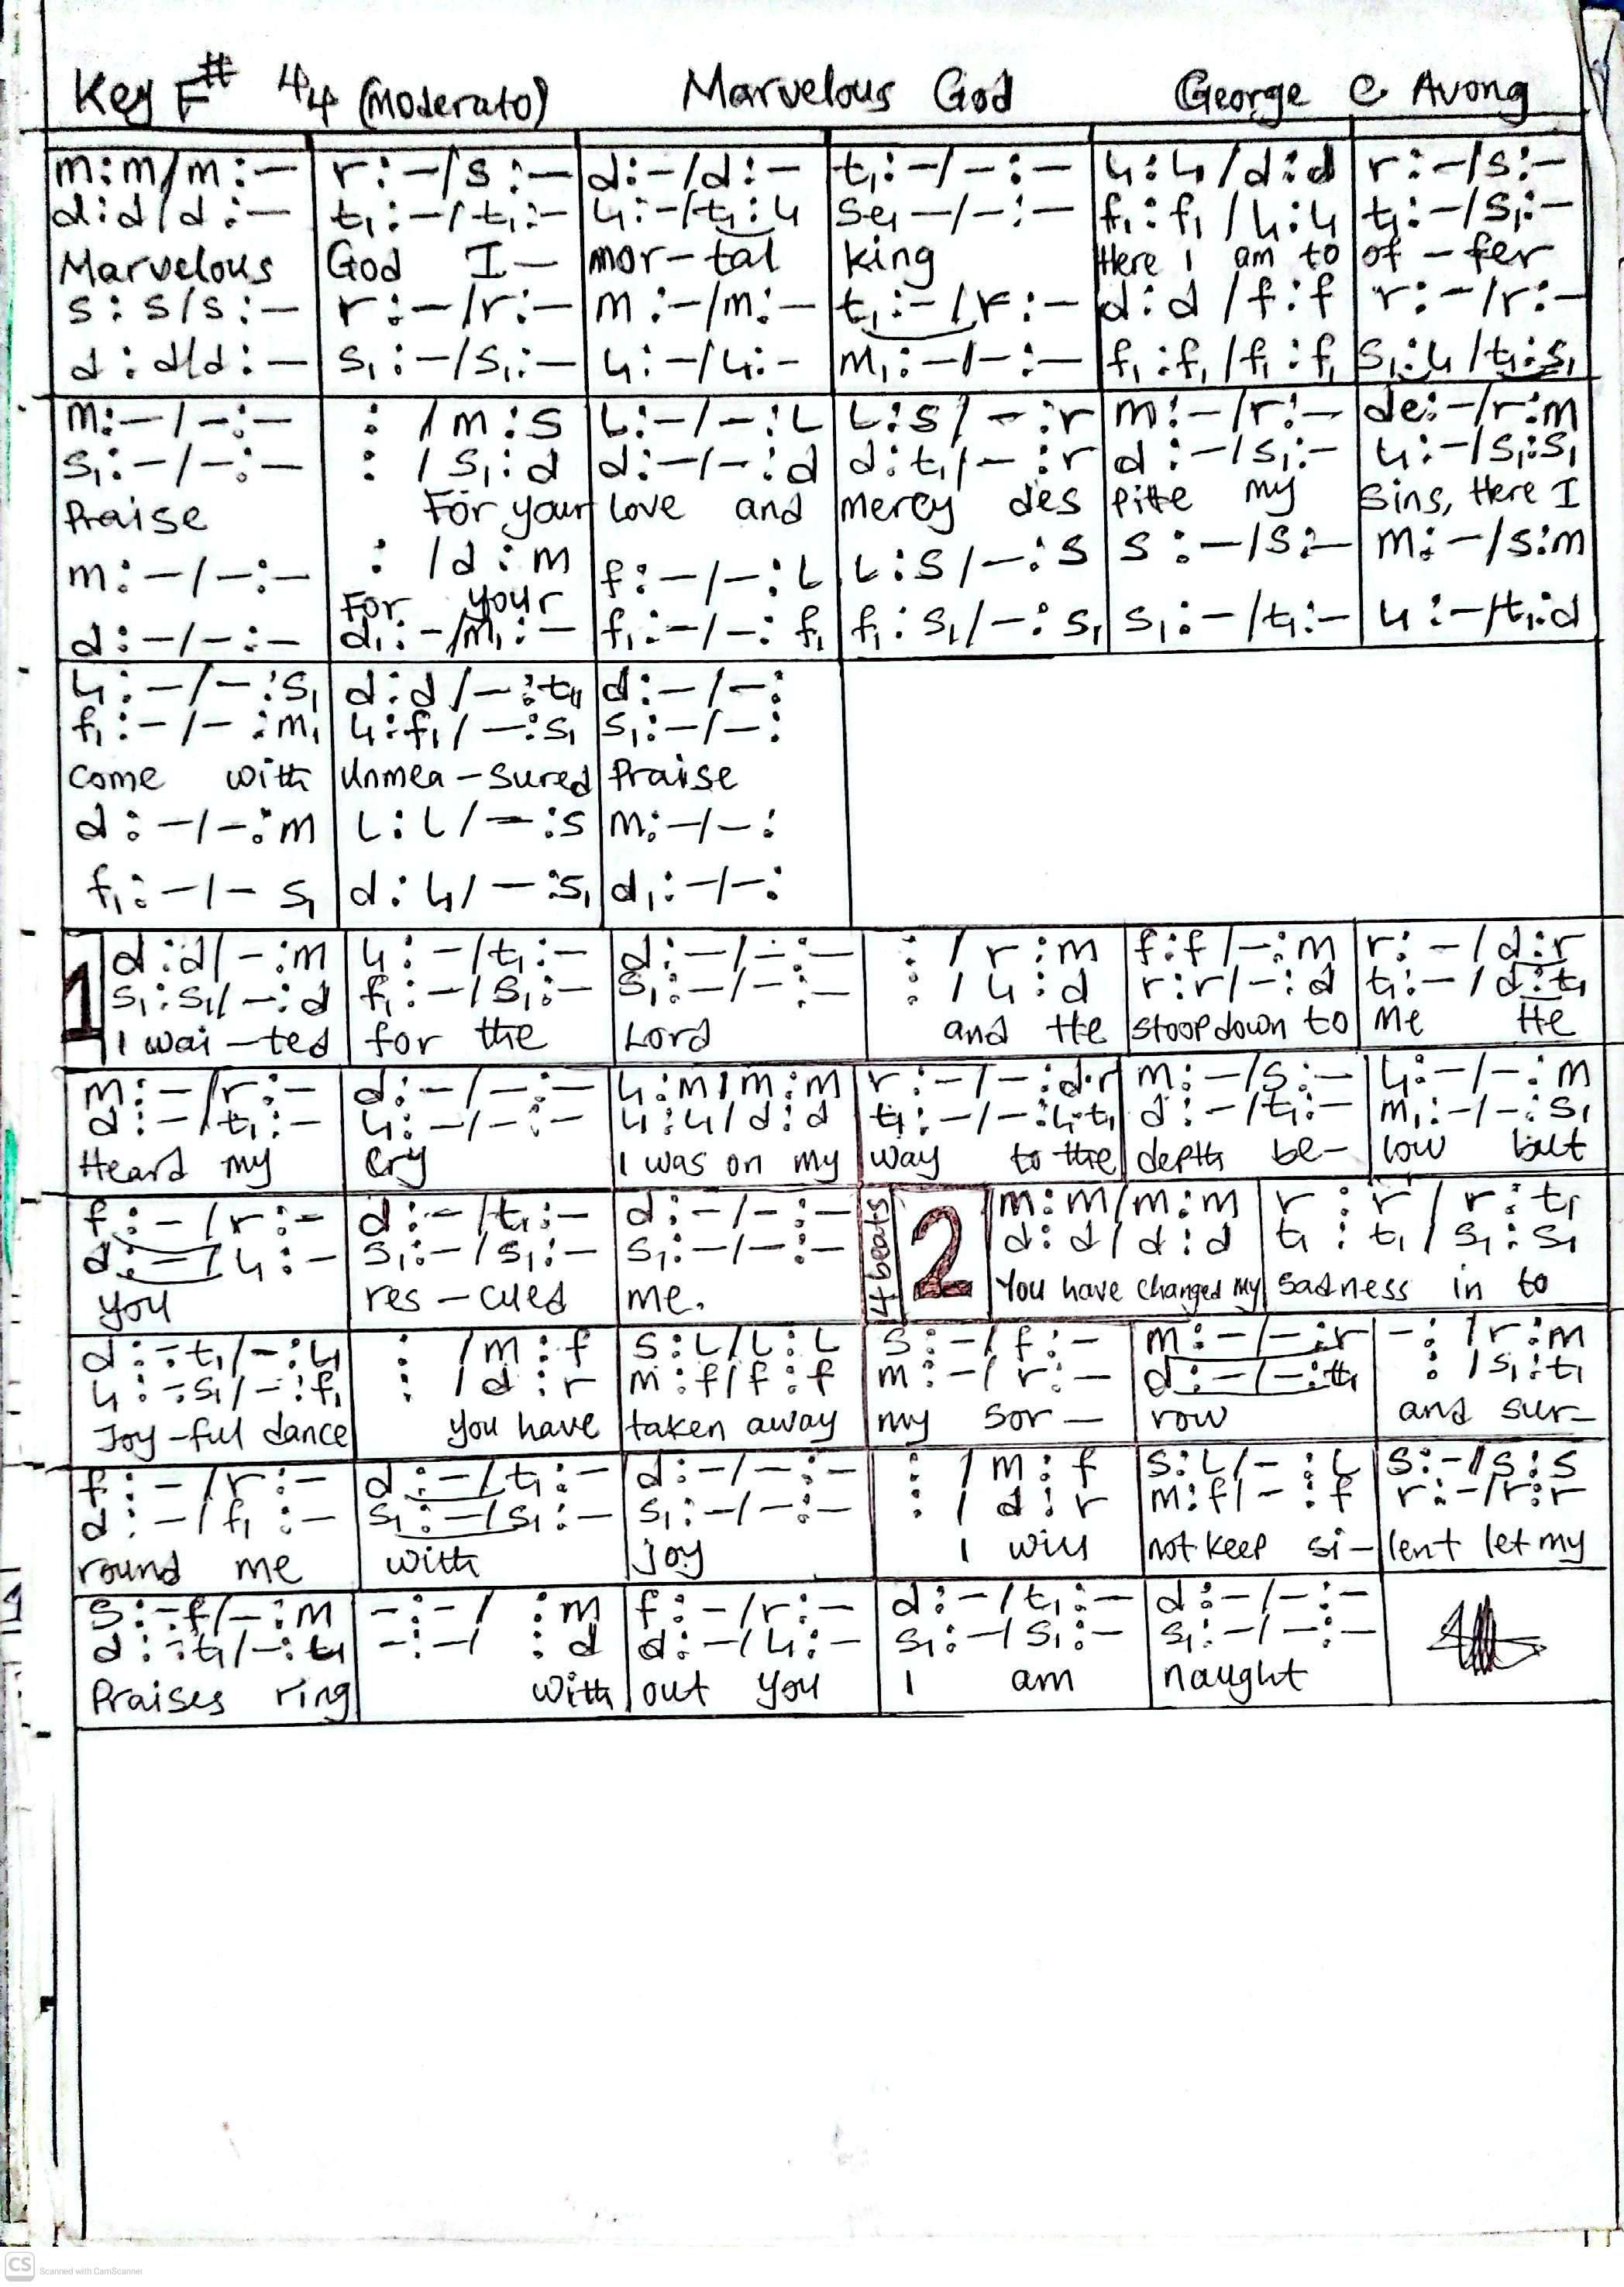 Key F# 4/4 (Moderato) Marvelous God George C Avong
m:m/m:— | r:—/s:— | d:—/d:— | t₁:—/—:— | l₁:l₁/d:d | r:—/s:—
d:d/d:— | t₁:—/t₁:— | l₁:—/t₁:l₁ | se₁—/—:— | f₁:f₁/l₁:l₁ | t₁:—/s₁:—
Marvelous | God I— | mor-tal | king | Here I am to | of-fer
s:s/s:— | r:—/r:— | m:—/m:— | t₁:—/r:— | d:d/f:f | r:—/r:—
d:d/d:— | s₁:—/s₁:— | l₁:—/l₁:- | m₁:—/—:— | f₁:f₁/f₁:f₁ | s₁:l₁/t₁:s₁
m:—/—:— | : /m:s | L:—/—:L | L:s/—:r | m:—/r:— | de:—/r:m
s₁:—/—:— | : /s₁:d | d:—/—:d | d:t₁/—:r | d:—/s₁:— | l₁:—/s₁:s₁
Praise | For your | love and | mercy des | pitte my | Sins, Here I
m:—/—:— | : /d:m | f:—/—:L | L:s/—:s | s:—/s:— | m:—/s:m
For your
d:—/—:— | d₁:—/m₁:— | f₁:—/—:f₁ | f₁:s₁/—:s₁ | s₁:—/t₁:— | l₁:—/t₁:d
l₁:—/—:s₁ | d:d/—:t₁ | d:—/—:
f₁:—/—:m₁ | l₁:f₁/—:s₁ | s₁:—/—:
come with | unmea-sured | Praise
d:—/—:m | L:L/—:s | m:—/—:
f₁:—/— s₁ | d:l₁/—:s₁ | d₁:—/—:
1 d:d/—:m | l₁:—/t₁:— | d:—/—:— | : /r:m | f:f/—:m | r:—/d:r
s₁:s₁/—:d | f₁:—/s₁:— | s₁:—/—:— | : /l₁:d | r:r/—:d | t₁:—/d:t₁
I wai-ted | for the | Lord | and He | stoop down to | me He
m:—/r:— | d:—/—:— | l₁:m/m:m | r:—/—:d.r | m:—/s:— | l₁:—/—:m
d:—/t₁:— | l₁:—/—:— | l₁:l₁/d:d | t₁:—/—:l₁.t₁ | d:—/t₁:— | m₁:—/—:s₁
Heard my | cry | I was on my | way to the | depth be- | low but
f:—/r:— | d:—/t₁:— | d:—/—:— | 4 beats | 2 m:m/m:m | r:r/r:t₁
d:—/l₁:— | s₁:—/s₁:— | s₁:—/—:— | d:d/d:d | t₁:t₁/s₁:s₁
you | res-cued | me. | You have changed my | sadness in to
d:-:t₁/—:l₁ | : /m:f | s:L/L:L | s:—/f:— | m:—/—:r | -: /r:m
l₁:-:s₁/—:f₁ | : /d:r | m:f/f:f | m:—/r:— | d:—/—:t₁ | : /s₁:t₁
Joy-ful dance | you have | taken away | my sor- | row | and sur-
f:—/r:— | d:—/t₁:— | d:—/—:— | : /m:f | s:L/—:L | s:—/s:s
d:—/f₁:— | s₁:—/s₁:— | s₁:—/—:— | : /d:r | m:f/—:f | r:—/r:r
round me | with | Joy | I will | not keep si- | lent let my
s:-:f/—:m | —:—/ :m | f:—/r:— | d:—/t₁:— | d:—/—:—
d:-:t₁/—:t₁ | —:—/ :d | d:—/l₁:— | s₁:—/s₁:— | s₁:—/—:—
Praises ring | with | out you | I am | naught
CS Scanned with CamScanner